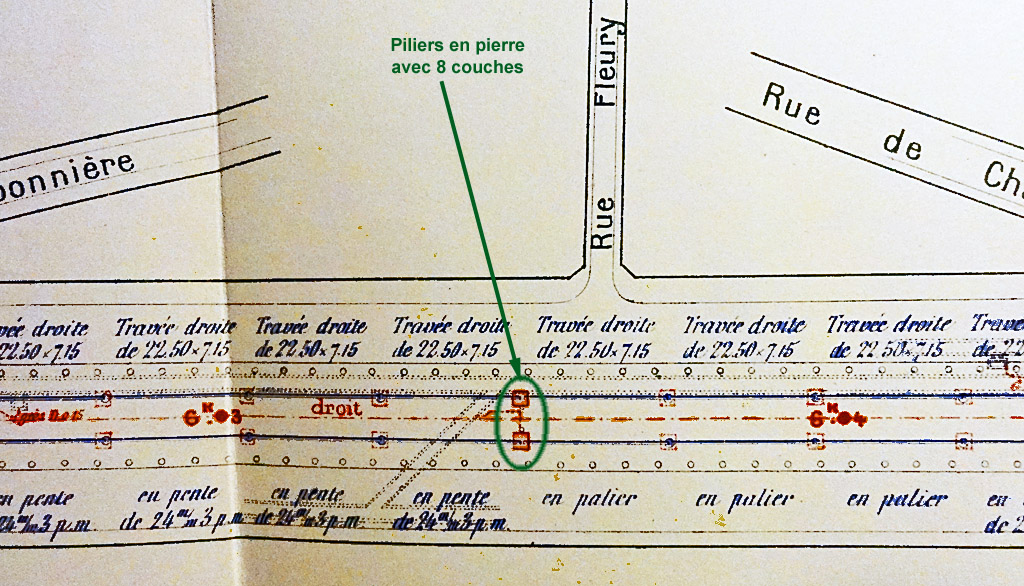 Piliers en pierre
avec 8 couches
Rue Fleury
Rue de
onnière
Travée droite
de 22.50×7.15
Travée droite
de 22.50×7.15
Travée droite
de 22.50×7.15
Travée droite
de 22.50×7.15
Travée droite
de 22.50×7.15
Travée droite
de 22.50×7.15
vée droite
22.50×7.15
6ᴷ.03
droit
6ᴷ.04
en pente
24ᵐ/ᵐ3 p.m
en pente
de 24ᵐ/ᵐ3 p.m
en pente
de 24ᵐ/ᵐ3 p.m
en pente
de 24ᵐ/ᵐ3 p.m.
en palier
en palier
en palier
en
de 2